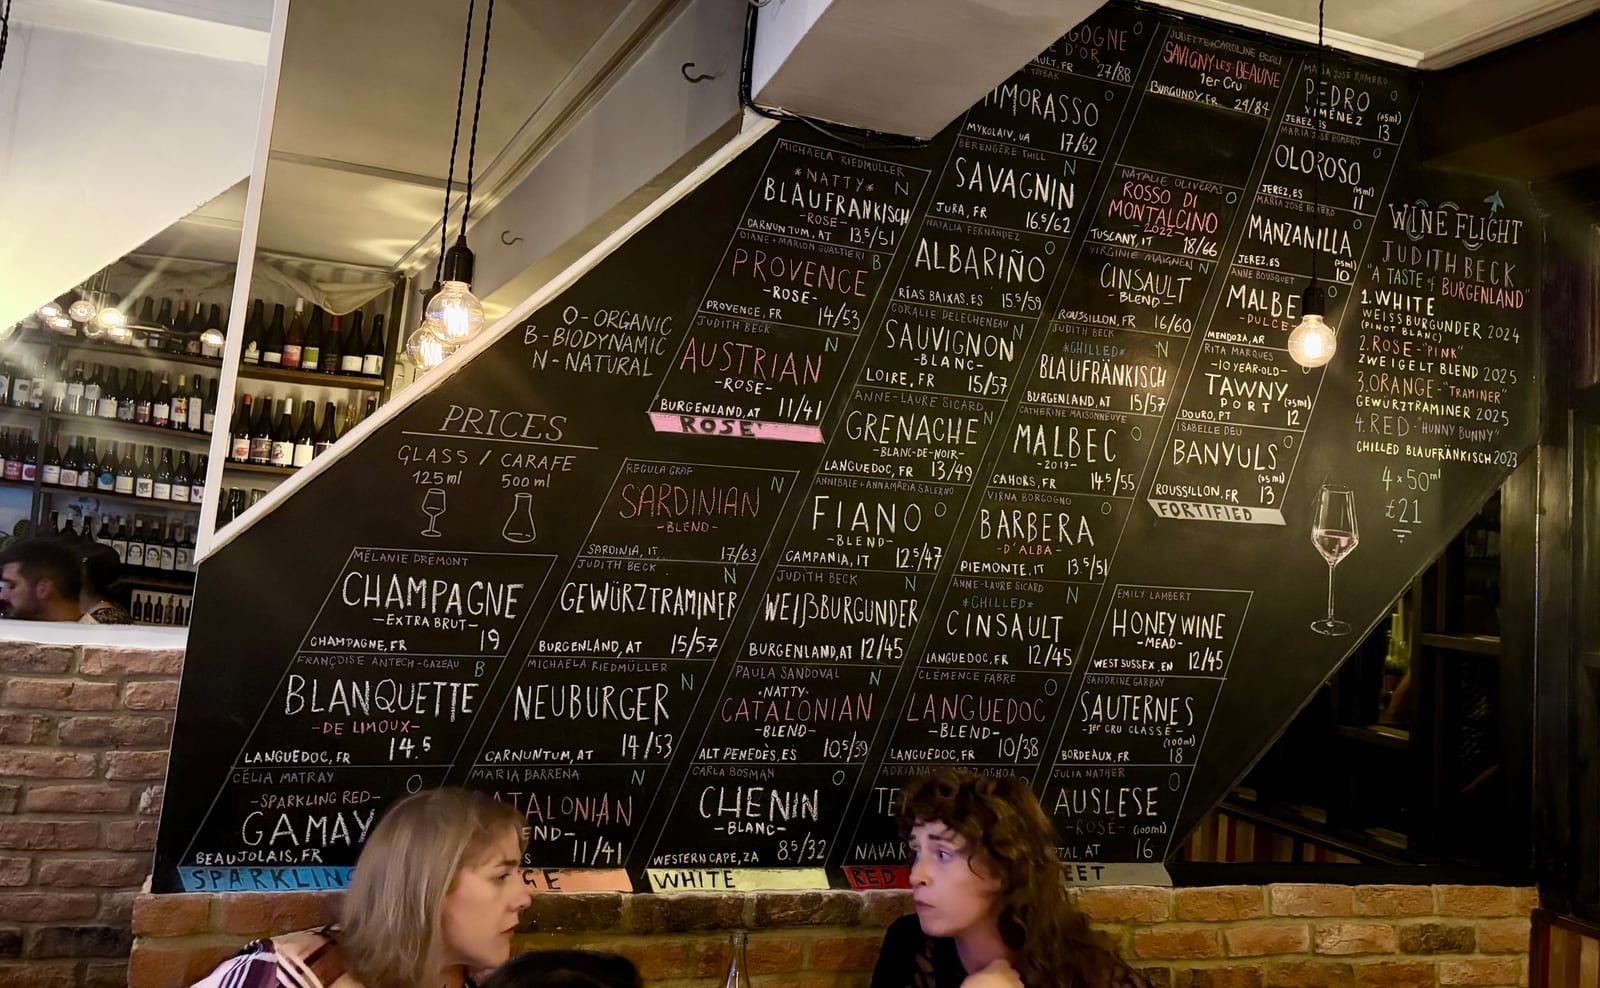 O - ORGANIC
B - BIODYNAMIC
N - NATURAL
PRICES
GLASS / CARAFE
125ml 500ml
MÉLANIE DRÉMONT
CHAMPAGNE
- EXTRA BRUT -
CHAMPAGNE, FR 19
FRANÇOISE ANTECH-GAZEAU B
BLANQUETTE
- DE LIMOUX -
LANGUEDOC, FR 14.5
CÉLIA MATRAY O
- SPARKLING RED -
GAMAY
BEAUJOLAIS, FR
SPARKLING
REGULA GRAF N
SARDINIAN
- BLEND -
SARDINIA, IT 17/63
JUDITH BECK N
GEWÜRZTRAMINER
BURGENLAND, AT 15/57
MICHAELA RIEDMÜLLER N
NEUBURGER
CARNUNTUM, AT 14/53
MARIA BARRENA N
ATALONIAN
END -
S 11/41
GE
MICHAELA RIEDMULLER N
*NATTY*
BLAUFRANKISCH
- ROSE -
CARNUNTUM, AT 13.5/51
DIANE + MARION GUALTIERI B
PROVENCE
- ROSE -
PROVENCE, FR 14/53
JUDITH BECK N
AUSTRIAN
- ROSE -
BURGENLAND, AT 11/41
ROSE'
IMORASSO O
MYKOLAIV, UA 17/62
BÉRENGÈRE THILL N
SAVAGNIN
JURA, FR 16.5/62
NATALIA FERNÁNDEZ O
ALBARIÑO
RÍAS BAIXAS, ES 15.5/59
CORALIE DELECHENEAU N
SAUVIGNON
- BLANC -
LOIRE, FR 15/57
ANNE-LAURE SICARD N
GRENACHE
- BLANC-DE-NOIR -
LANGUEDOC, FR 13/49
ANNIBALE + ANNAMARIA SALERNO O
FIANO
- BLEND -
CAMPANIA, IT 12.5/47
JUDITH BECK N
WEIßBURGUNDER
BURGENLAND, AT 12/45
PAULA SANDOVAL N
·NATTY·
CATALONIAN
- BLEND -
ALT PENEDÈS, ES 10.5/39
CARLA BOSMAN O
CHENIN
- BLANC -
WESTERN CAPE, ZA 8.5/32
WHITE
GOGNE O
E D'OR
AULT, FR 27/88
JULIETTE + CAROLINE BEAU
SAVIGNY-LES-BEAUNE
1er Cru
BURGUNDY, FR 24/84
NATALIE OLIVEROS O
ROSSO DI
MONTALCINO
- 2022 -
TUSCANY, IT 18/66
VIRGINIE MAIGNEN N
CINSAULT
- BLEND -
ROUSSILLON, FR 16/60
JUDITH BECK N
*CHILLED*
BLAUFRÄNKISCH
BURGENLAND, AT 15/57
CATHERINE MAISONNEUVE O
MALBEC
- 2019 -
CAHORS, FR 14.5/55
VIRNA BORGOGNO O
BARBERA
- D'ALBA -
PIEMONTE, IT 13.5/51
ANNE-LAURE SICARD N
*CHILLED*
CINSAULT
LANGUEDOC, FR 12/45
CLÉMENCE FABRE O
LANGUEDOC
- BLEND -
LANGUEDOC, FR 10/38
OCHOA
TE
NAVAR
RED
MARIA JOSÉ ROMERO O
PEDRO
XIMÉNEZ (75ml)
JEREZ, ES 13
MARIA JOSÉ ROMERO O
OLOROSO
(75ml)
JEREZ, ES 11
MARIA JOSÉ ROMERO O
MANZANILLA
(75ml)
JEREZ, ES 10
ANNE BOUSQUET O
MALBE
- DULCE
MENDOZA, AR
RITA MARQUES
- 10 YEAR-OLD -
TAWNY
PORT (75ml)
DOURO, PT 12
ISABELLE DEU O
BANYULS
(75ml)
ROUSSILLON, FR 13
FORTIFIED
EMILY LAMBERT
HONEY WINE
- MEAD -
WEST SUSSEX, EN 12/45
SANDRINE GARBAY
SAUTERNES
- 1er CRU CLASSÉ -
(100ml)
BORDEAUX, FR 18
JULIA NATHER O
AUSLESE
- ROSÉ - (100ml)
TAL, AT 16
EET
WINE FLIGHT
JUDITH BECK
"A TASTE of BURGENLAND"
1. WHITE
WEISSBURGUNDER 2024
(PINOT BLANC)
2. ROSE - "PINK"
ZWEIGELT BLEND 2025
3. ORANGE - "TRAMINER"
GEWÜRZTRAMINER 2025
4. RED - "HUNNY BUNNY"
CHILLED BLAUFRÄNKISCH 2023
4 x 50ml
£21